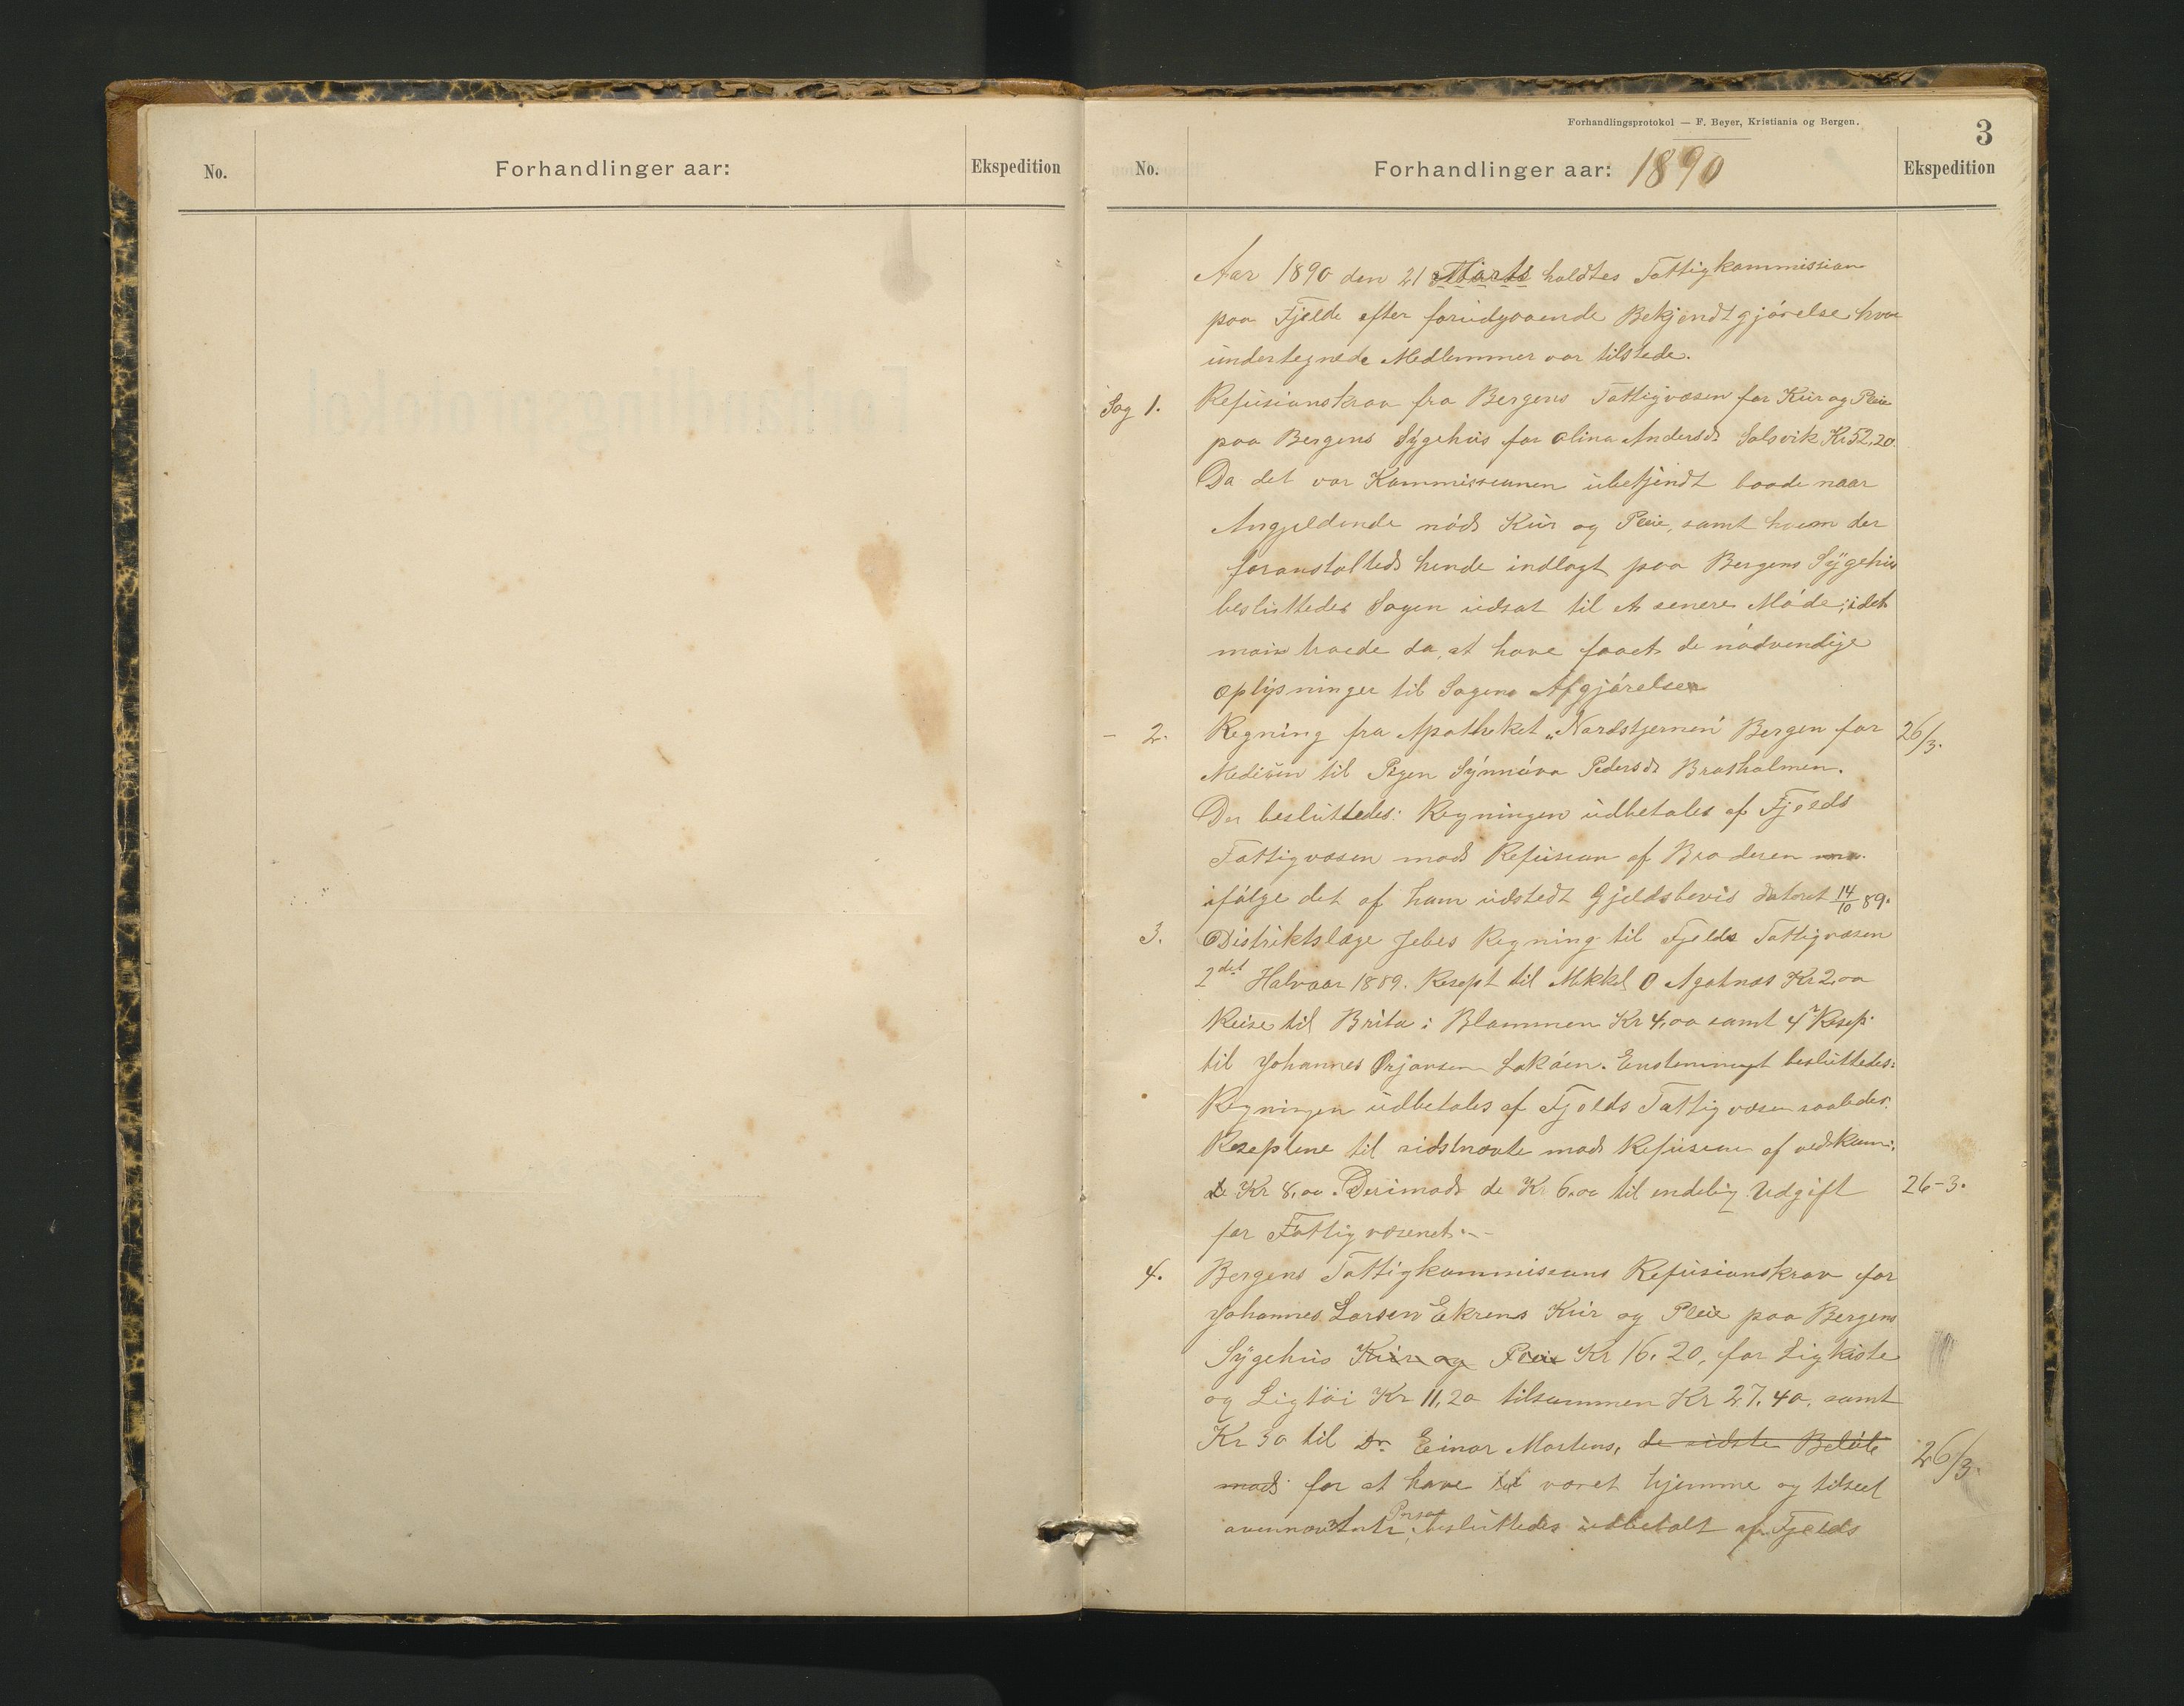 No.
Forhandlinger aar:
Ekspedition
Forhandlingsprotokol — F. Beyer, Kristiania og Bergen.
3
No.
Forhandlinger aar: 1890
Ekspedition
Aar 1890 den 21 Marts holdtes Fattigkommission
paa Fjelde efter forudgaaende Bekjendtgjörelse hvor
undertegnede Medlemmer var tilstede.
Sag 1. Refusionskrav fra Bergens Fattigvæsen for Kur og Pleie
paa Bergens Sygehus for Olina Andersd Solsvik Kr 52,20.
Da det var Kommissionen ubekjendt baade naar
Angjeldende nöd Kur og Pleie, samt hvem der
foranstalted hende indlagt paa Bergens Sygehus
besluttedes Sagen udsat til et senere Möde; idet
man troede da, at have faaet de nödvendige
Oplysninger til Sagens Afgjörelse
- 2. Regning fra Apotheket „Nordstjernen" Bergen for 26/3.
Medisin til Pigen Synnöva Pedersd Bratholmen.
Der besluttedes: Regningen udbetales af Fjelds
Fattigvæsen mod Refusion af Broderen
ifölge det af ham udstedt Gjeldsbevis dateret 14/10 89.
3. Distriktslæge Jebes Regning til Fjelds Fattigvæsen
2det Halvaar 1889. Resept til Mikkel O Agotnes Kr 2,00
Reise til Brita i Blommen Kr 4,00 samt 4 Resep.
til Johannes Örjansen Loköen. Enstemmigt besluttedes:
Regningen udbetales af Fjelds Fattigvæsen saaledes:
Reseptene til sidstnævnte mod Refusion af vedkom:
de Kr 8,00. Derimod de Kr 6,00 til endelig Udgift 26-3.
for Fattigvæsenet.-
4. Bergens Fattigkommissions Refusionskrav for
Johannes Larsen Ekrens Kur og Pleie paa Bergens
Sygehus Kur og Pleie Kr 16.20, for Ligkiste
og Ligtöi Kr 11,20 tilsammen Kr 27.40, samt
Kr 30 til Dr. Einar Martens, de sidste Belöb 26/3.
mod for at have været hjemme og tilseet
ovennævnte besluttedes udbetalt af Fjelds